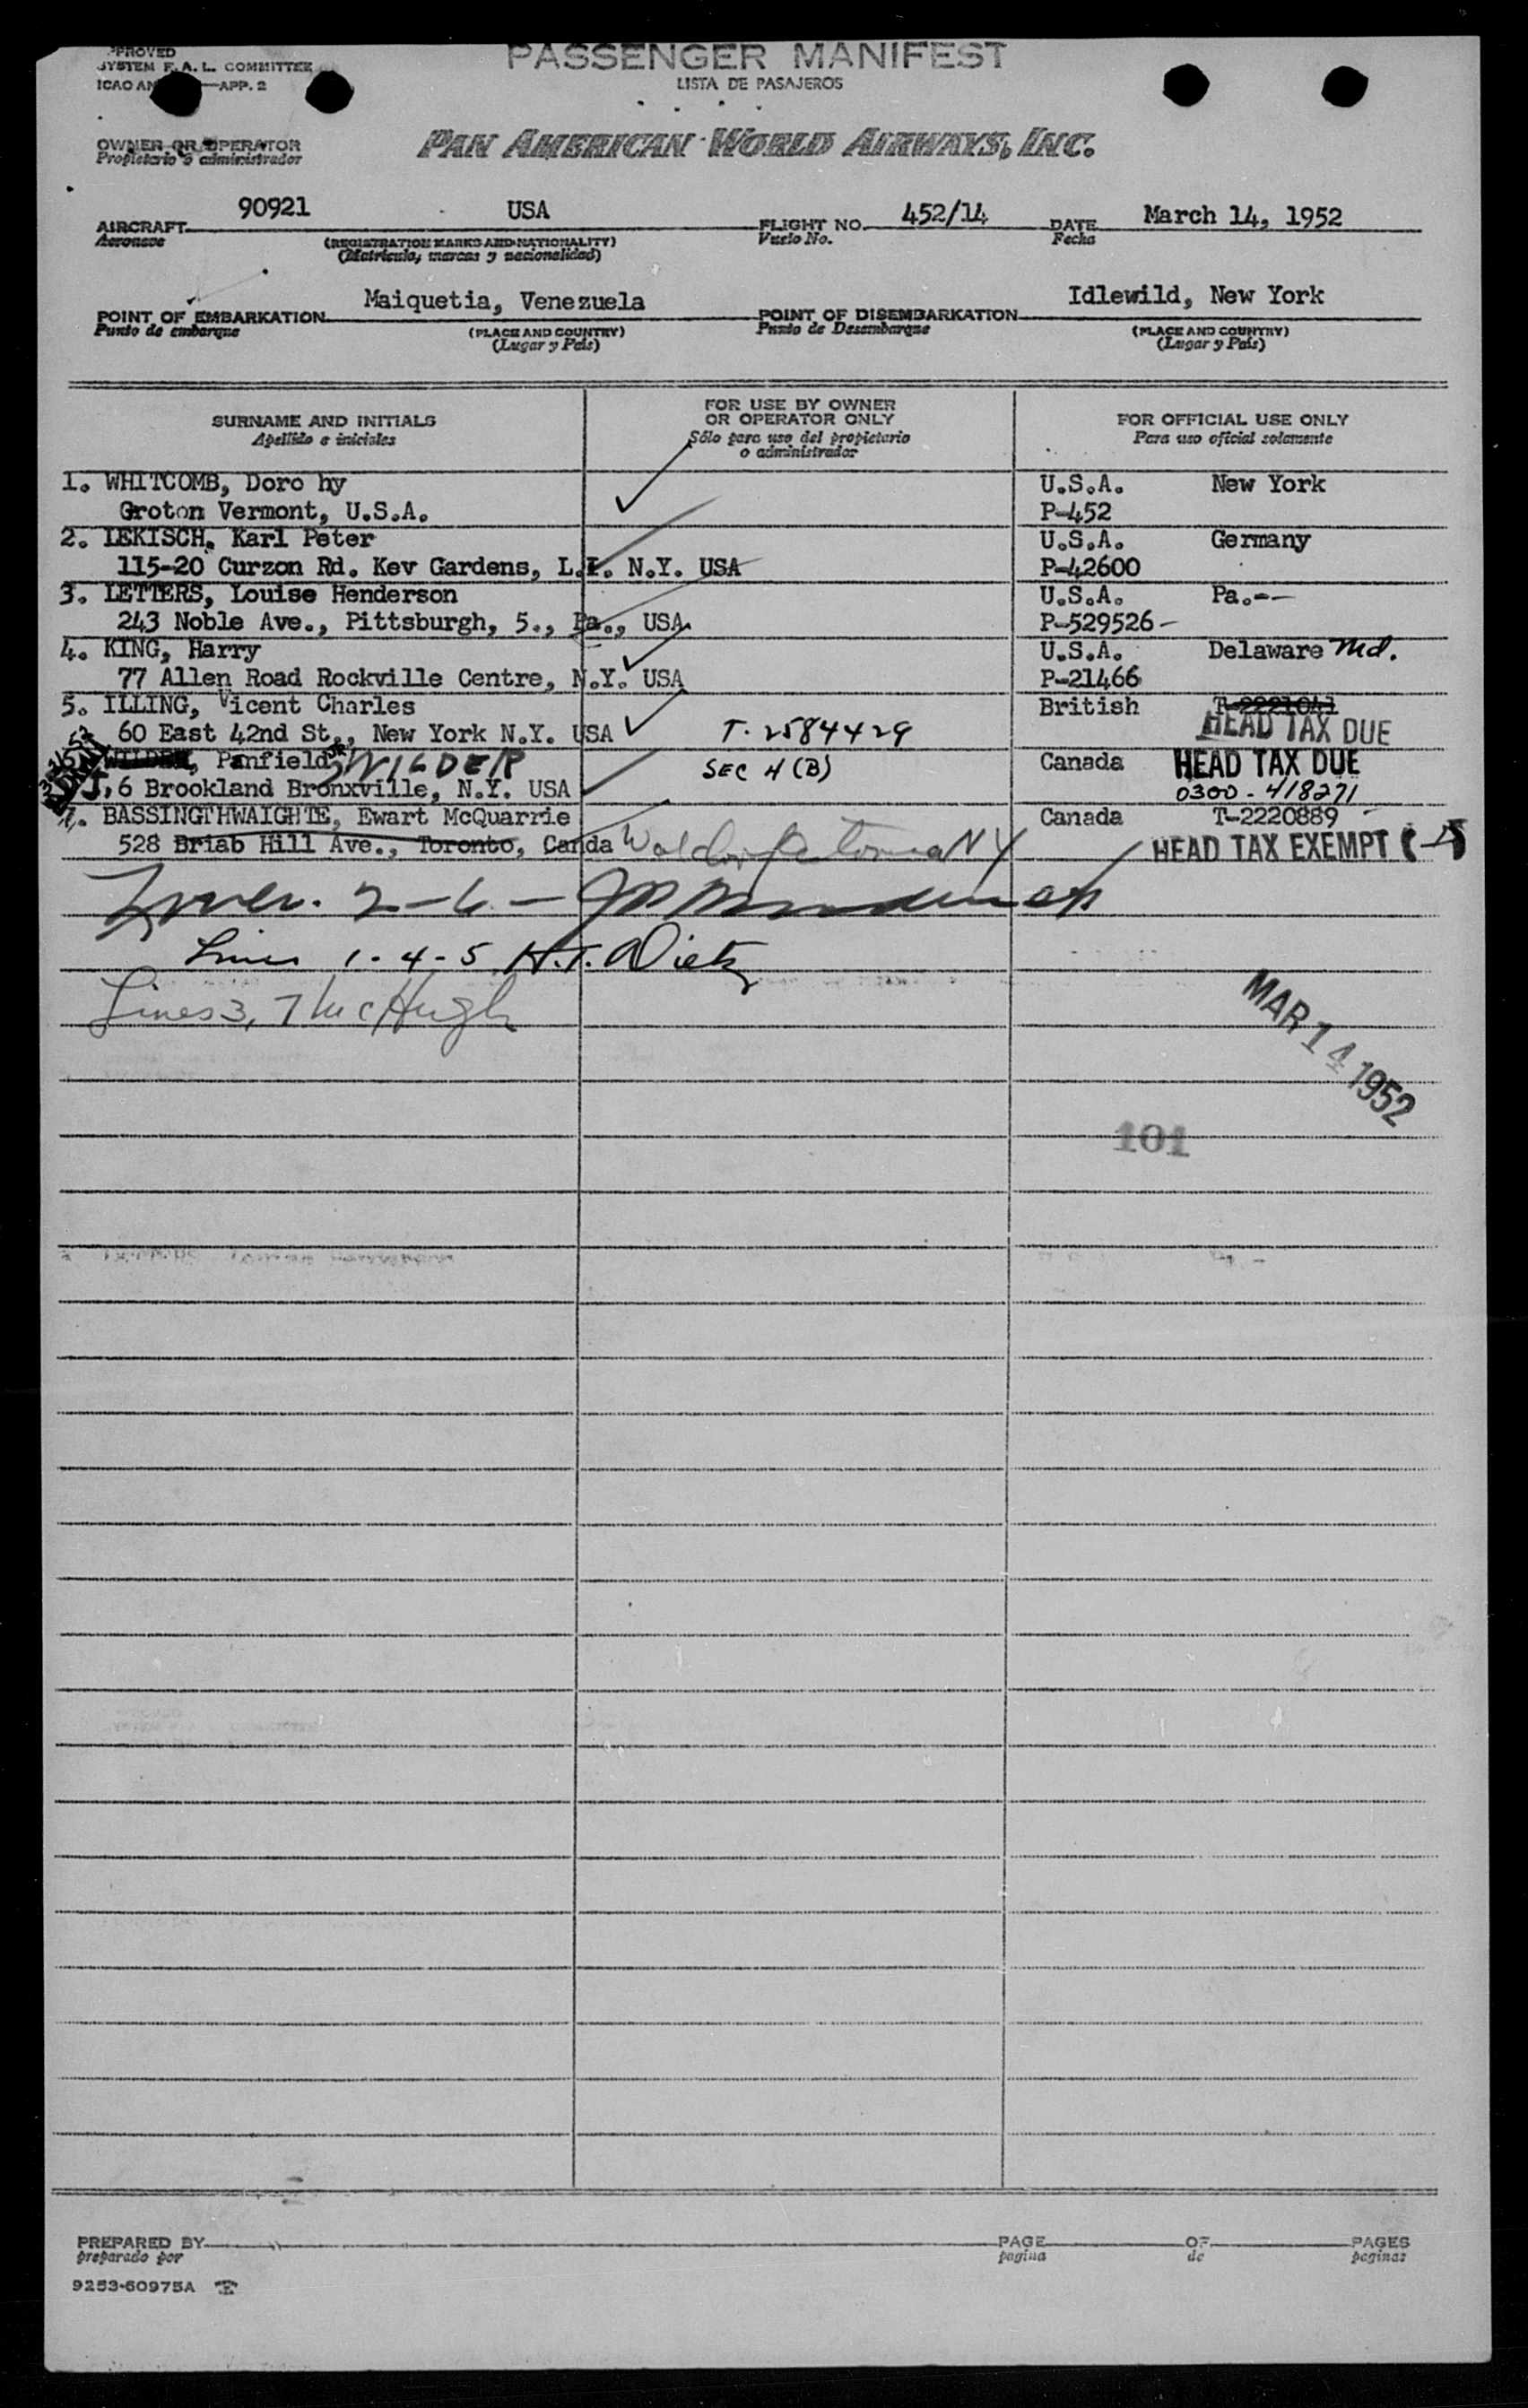 PPROVED
SYSTEM F. A. L. COMMITTEE
ICAO AN APP. 2
PASSENGER MANIFEST
LISTA DE PASAJEROS
OWNER OR OPERATOR
Propietario o administrador
PAN AMERICAN WORLD AIRWAYS, INC.
AIRCRAFT 90921 USA FLIGHT NO. 452/14 DATE March 14, 1952
Aeronave (REGISTRATION MARKS AND NATIONALITY) Vuelo No. Fecha
(Matrícula, marcas y nacionalidad)
POINT OF EMBARKATION Maiquetia, Venezuela POINT OF DISEMBARKATION Idlewild, New York
Punto de embarque (PLACE AND COUNTRY) Punto de Desembarque (PLACE AND COUNTRY)
(Lugar y País) (Lugar y País)
SURNAME AND INITIALS
Apellido e iniciales
FOR USE BY OWNER
OR OPERATOR ONLY
Sólo para uso del propietario
o administrador
FOR OFFICIAL USE ONLY
Para uso oficial solamente
1. WHITCOMB, Doro hy U.S.A. New York
Groton Vermont, U.S.A. P-452
2. LEKISCH, Karl Peter U.S.A. Germany
115-20 Curzon Rd. Kev Gardens, L.I. N.Y. USA P-42600
3. LETTERS, Louise Henderson U.S.A. Pa.--
243 Noble Ave., Pittsburgh, 5., Pa., USA P-529526-
4. KING, Harry U.S.A. Delaware Md.
77 Allen Road Rockville Centre, N.Y. USA P-21466
5. ILLING, Vicent Charles British T-2221041
60 East 42nd St., New York N.Y. USA T-2584429 HEAD TAX DUE
WILDER, Panfield WILDER SEC 4 (B) Canada HEAD TAX DUE
6 Brookland Bronxville, N.Y. USA 0300-418271
7. BASSINGTHWAIGHTE, Ewart McQuarrie Canada T-2220889
528 Briab Hill Ave., Toronto, Canda Waldorf Astoria NY HEAD TAX EXEMPT
2-6-
Lines 1-4-5 H.T. Dietz
Lines 3, 7 McHugh
MAR 14 1952
101
PREPARED BY PAGE OF PAGES
preparado por pagina de paginas
9253-60975A